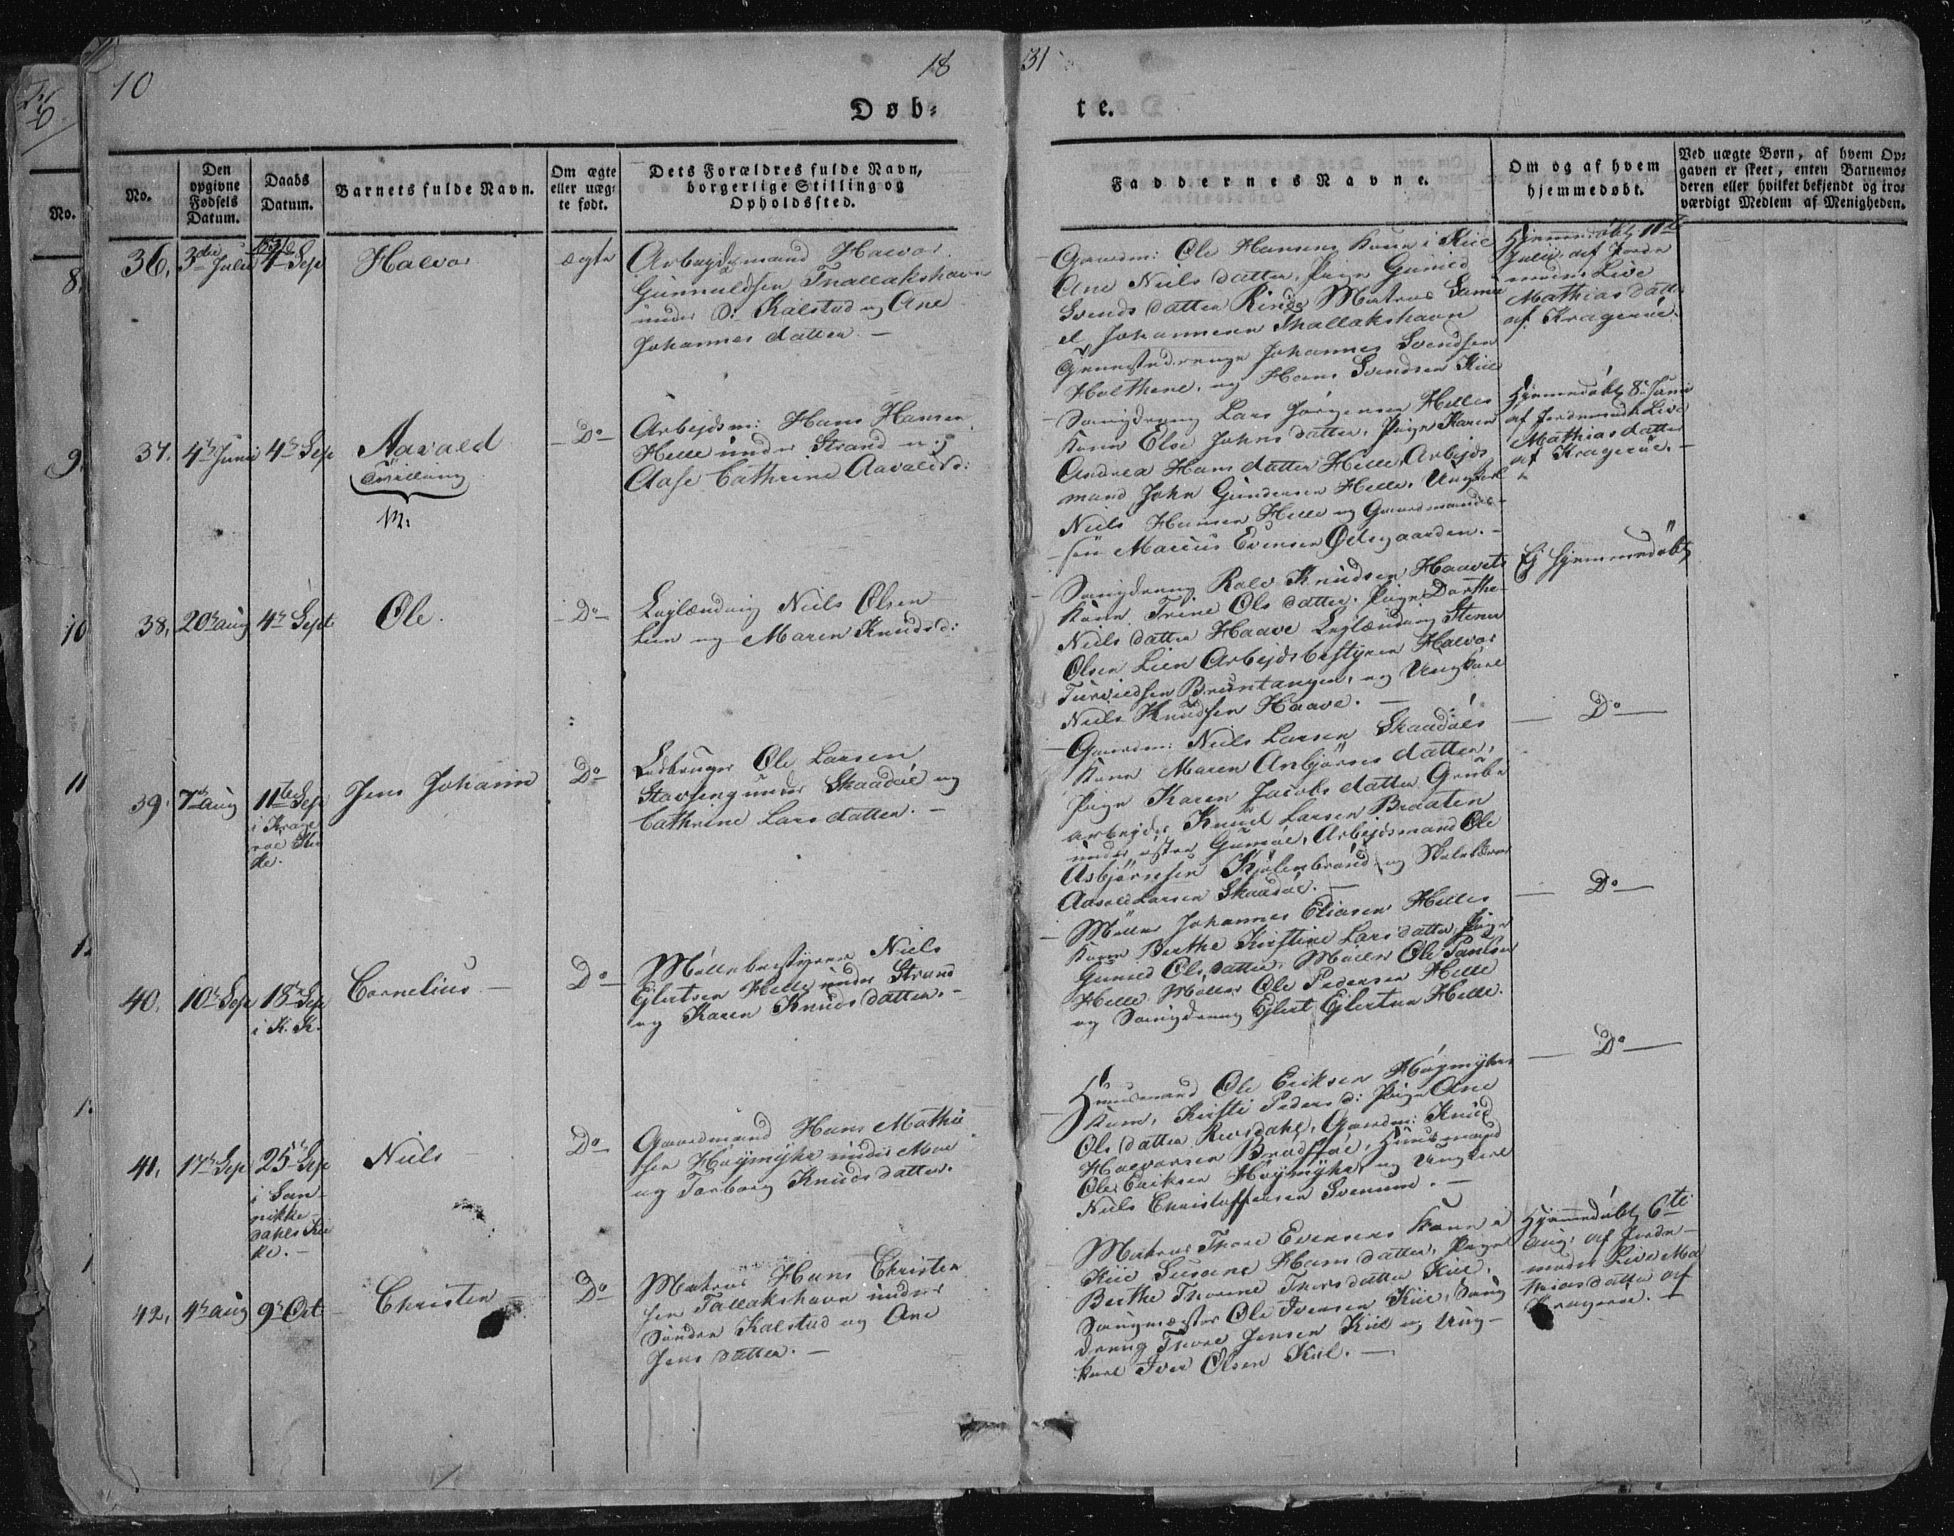 10
18
31
Døb-
te.
No.
Den opgivne Fødsels Datum.
Daabs Datum.
Barnets fulde Navn.
Om ægte eller uæg-te født.
Dets Forældres fulde Navn, borgerlige Stilling og Opholdssted.
Faddernes Navne.
Om og af hvem hjemmedøbt.
Ved uægte Børn, af hvem Op-gaven er skeet, enten Barnemo-deren eller hvilket bekjendt og tro-værdigt Medlem af Menigheden.
No.
8.
9.
10
11
36.
3die Julii
4 Sep
Halvor
ægte
Arbejdsmand Halvor
Gunnuldsen Tallakshavn
under S. Kalstad og Ane
Johannes datter. —
Gaardm: Ole Hansens Kone i Kiil
Ane Niels datter, Pige Gunild
Svends datter Matros Samu
el Johannesen Thallakshavn
Johannes Svendsen
Holthene, og Hans Svendsen Kiil
Hjemmedøbt 11te
Julii af Jorde
moder Live
Mathias datter
af Kragerøe.
37.
4de Juni
4de Sep
Aavald
Tvilling
M.
— Do —
Arbejdsm: Hans Hansen
Helle under Strand og
Aase Cathrine Aavaldsd:
Lars Jørgensen Helles
Kone Else Johns datter, Pige Karen
Andrea Hans datter Helle, Arbejds
mand John Gundersen Helle, Ungkarl
Niels Hansen Helle og Gaardmands
søn Marcus Evensen Ødegaarden. —
Hjemmedøbt 8de Junii
af Jordemoder Live
Mathias datter
af Kragerøe. —
38.
20de aug
4de Sept
Ole.
— Do —
Leylænding Niels Olsen
Lien og Maren Knudsd:
Rolv Knudsen Haavets
Kone Trine Ols datter. Pige Dorthe
Niels datter Haave Leylænding Stener
Olsen Lien Arbejdsbestyrer Halvor
Bruntangen, og Ungkarl
Niels Knudsen Haave. —
Ej hjemmedøbt
39.
7de aug
11te Sep
i Krage
røe Kir
ke.
Jens Johann
Do
Ole Larsen
Stavseng under Skaadøe og
Cathrine Lars datter. —
Gaardm: Niels Larsen Skaadøes
Kone Maren Anbjørns datter,
Pige Karen Jacobs datter Grube
arbejder Knud Larsen Braaten
under østre Gumøe, Arbejdsmand Ole
Asbjørnsen Kjølebrønd og Skolelærer
Aavold Larsen Skaadøe. —
— Do —
40.
10de Sep
18de Sep
i K. K.
Cornelius —
Do —
Møllebestyrer Niels
Ejlertsen Helle under Strand
og Karen Knuds datter. —
Møller Johannes Eliasen Helles
Kone Berthe Kirstine Lars datter, Pige
Gunild Ols datter, Møller Ole Paulsen
Helle Møller Ole Pedersen Helle
og Ejlert Ejlertsen Helle.
— Do —
41.
17de Sep
25de Sep
i San-
nikke-
dahls Kir
ke. —
Niels —
Do —
Gaardmand Hans Mathi
sen Højmyhr under Moe
og Torborg Knuds datter.
Huusmand Ole Eriksen Høgmyhrs
Kone, Kirsti Pedersd: Pige Ane
Ols datter Reisdahl, Gaardm: Knud
Halvorsen Bradsføe, Huusmand
Ole Eriksen Højmyhr, og Ungkarl
Niels Christoffersen Svenum. —
— Do —
42.
4de aug
9de Oct
Christen —
Do —
Matros Hans Christen
sen Tallakshavn under
Søndre Kalstad og Ane
Jens datter. —
Matros Thore Evensens Kone i
Kiil Susane Hans datter, Pige
Berthe Thorine Thors datter Kiil,
Ole Iversen Kiil,
dreng Thore Jensen Kiil og Ung-
karl Iver Olsen Kiil. —
Hjemmedøbt 6te
Aug: af Jorde
moder Live Ma
thias datter af
Kragerøe. —